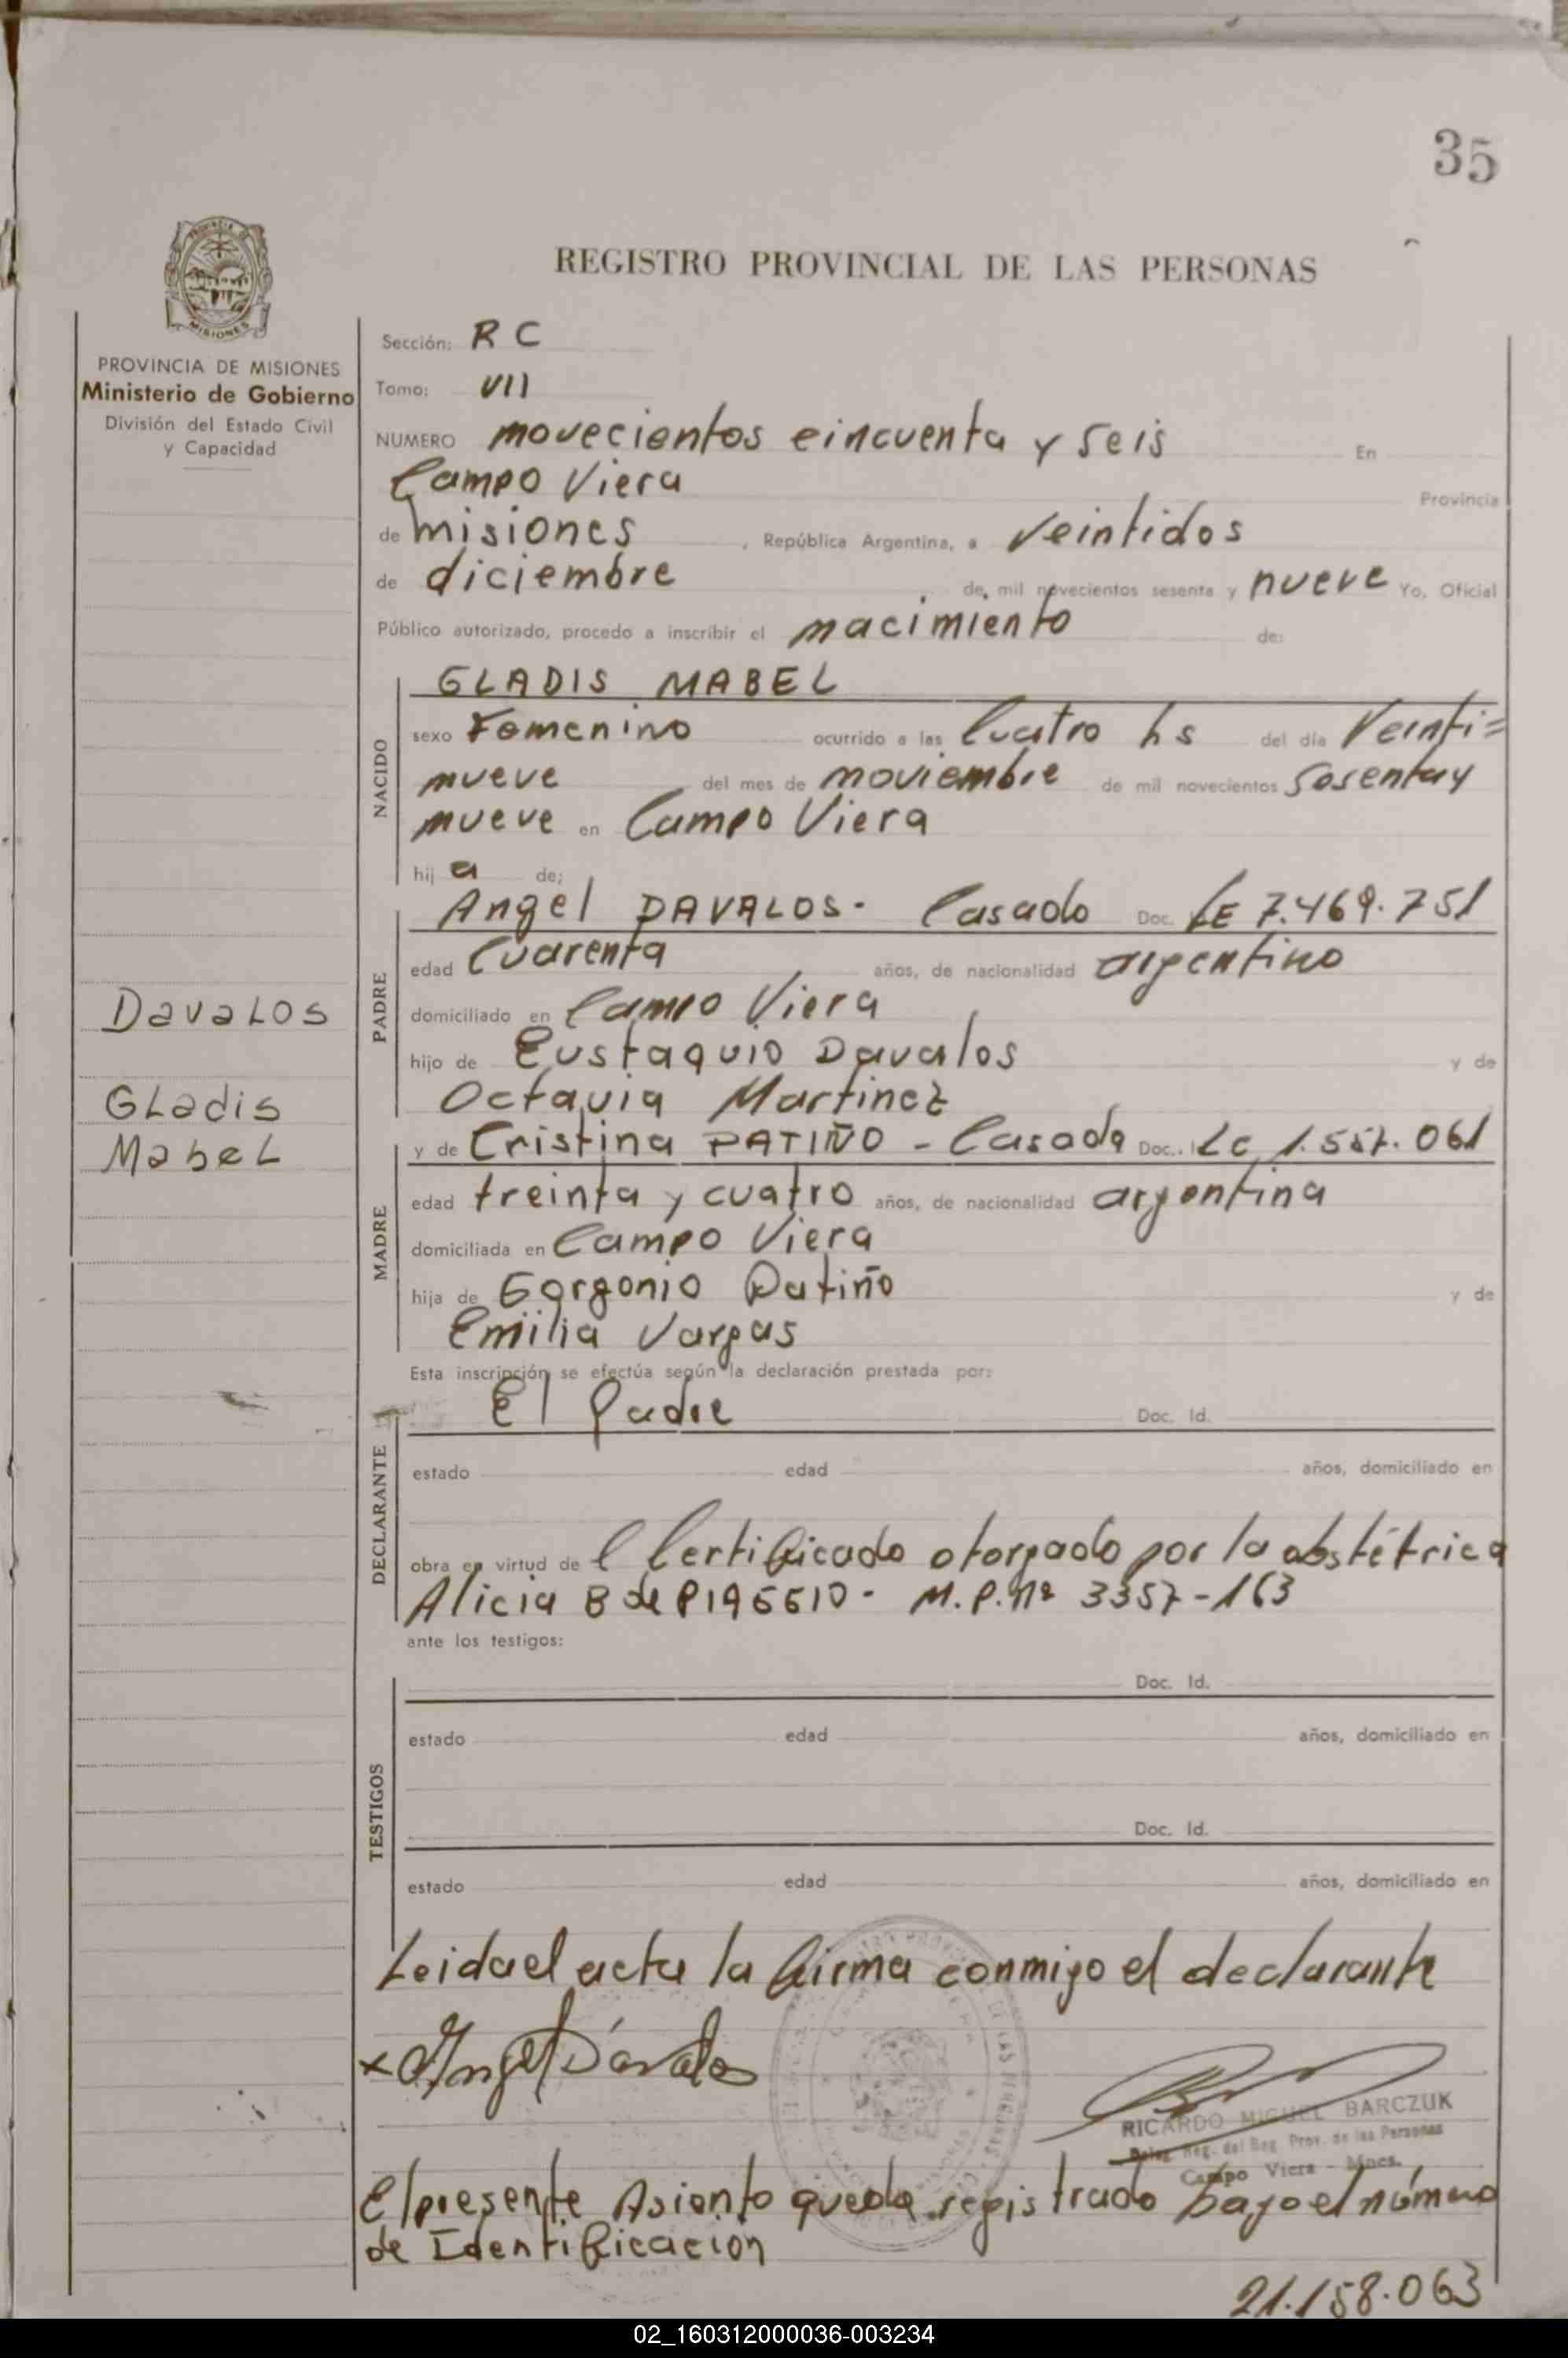 35
REGISTRO PROVINCIAL DE LAS PERSONAS
PROVINCIA DE MISIONES
Ministerio de Gobierno
División del Estado Civil
y Capacidad
Sección: R C
Tomo: VII
NUMERO movecientos cincuenta y seis En
Campo Viera Provincia
de misiones, República Argentina, a veintidos
de diciembre de mil novecientos sesenta y nueve Yo, Oficial
Público autorizado, procedo a inscribir el nacimiento de:
NACIDO
GLADIS MABEL
sexo Femenino ocurrido a las Cuatro hs del día Veinti=
nueve del mes de noviembre de mil novecientos Sesenta y
nueve en Campo Viera
hij a de;
PADRE
Angel DAVALOS. Casado Doc. LE 7.469.751
edad Cuarenta años, de nacionalidad argentino
domiciliado en Campo Viera
hijo de Eustaquio Davalos y de
Octavia Martinez
Davalos
Gladis
Mabel
MADRE
y de Cristina PATIÑO - Casada Doc. LC 1.557.061
edad treinta y cuatro años, de nacionalidad argentina
domiciliada en Campo Viera
hija de Gorgonio Patiño y de
Emilia Vargas
Esta inscripción se efectúa según la declaración prestada por:
DECLARANTE
El Padre Doc. Id.
estado edad años, domiciliado en
obra en virtud de l Certificado otorgado por la obstétrica
Alicia B de M.P. Nº 3357-163
ante los testigos:
TESTIGOS
Doc. Id.
estado edad años, domiciliado en
Doc. Id.
estado edad años, domiciliado en
Leida el acta la firma conmigo el declarante
x Angel Davalos
RICARDO MIGUEL BARCZUK
Deleg. Reg. del Reg. Prov. de las Personas
Campo Viera - Mnes.
El presente Asiento queda registrado bajo el número
de Identificación
21.158.063
02_160312000036-003234